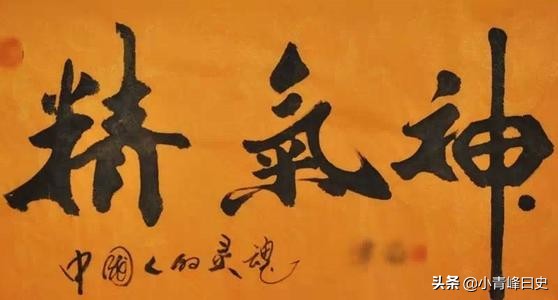 精氣神
中國人的灵魂
头条 @小青峰曰史